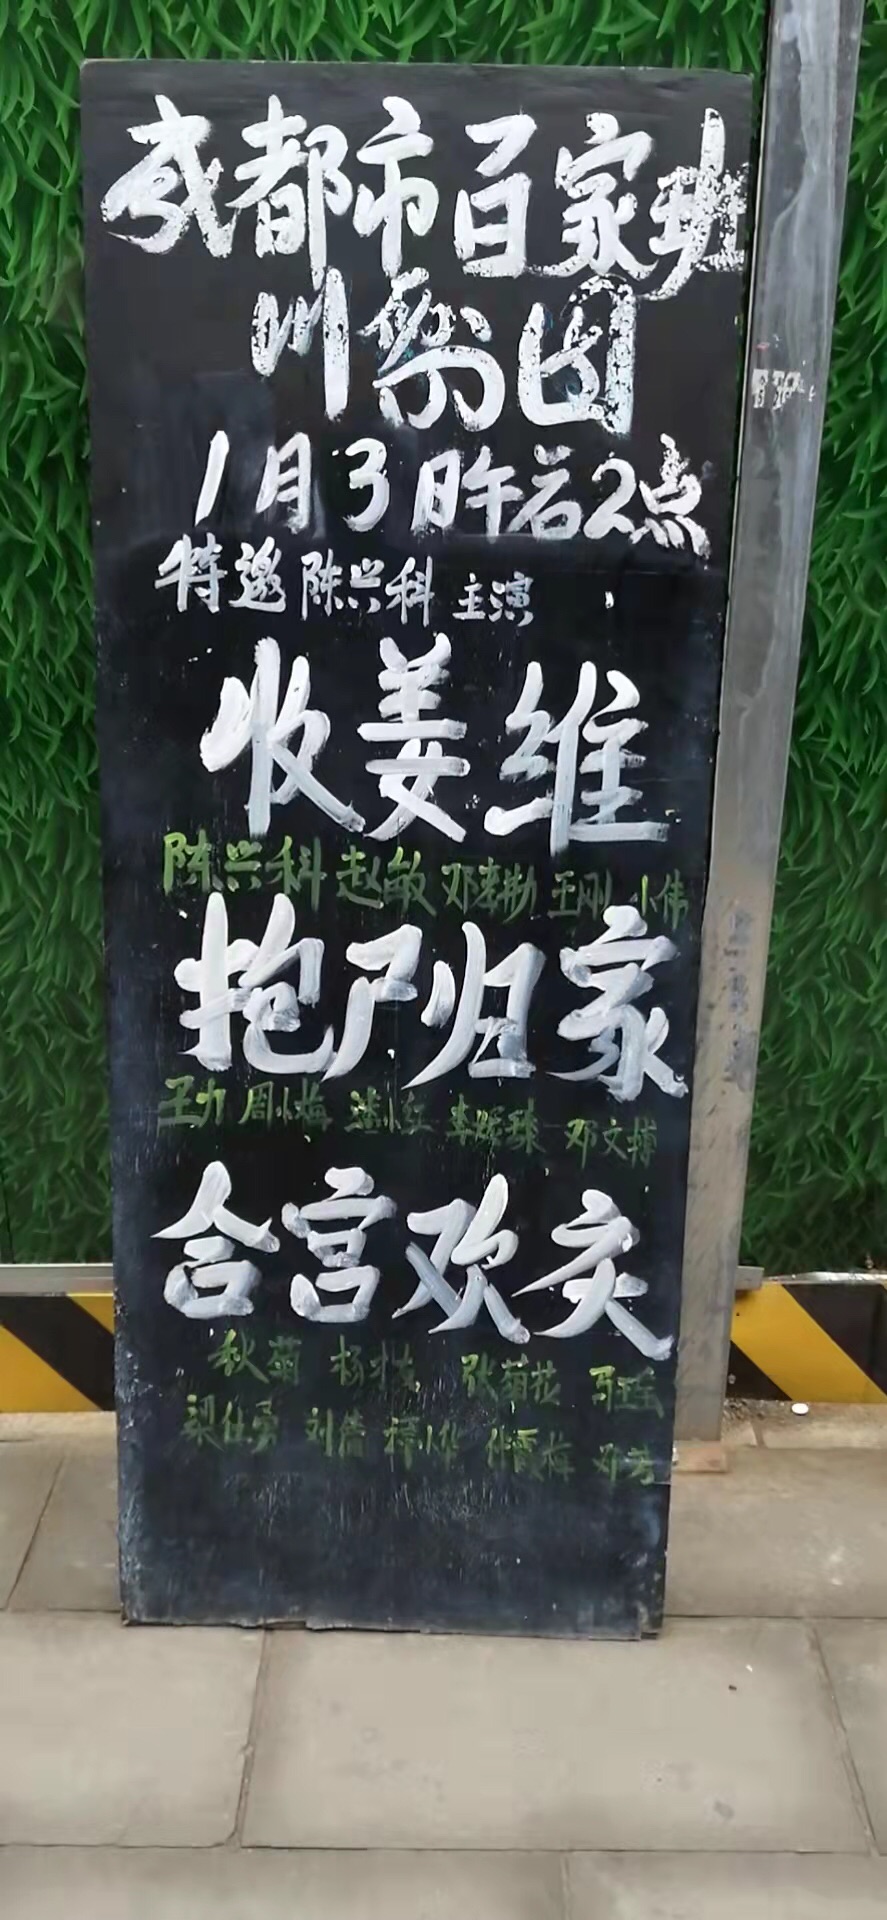 成都市百家班
川剧团
1月3日午后2点
特邀陈兴科 主演
收姜维
陈兴科 赵敏 邓孝勤 王刚 小伟
抱尸归家
王力 周小梅 小红 邓文搏
合宫欢庆
秋菊 杨 张菊花 马玉
梁仕勇 刘倩 谭小华 仲霞梅 邓芳